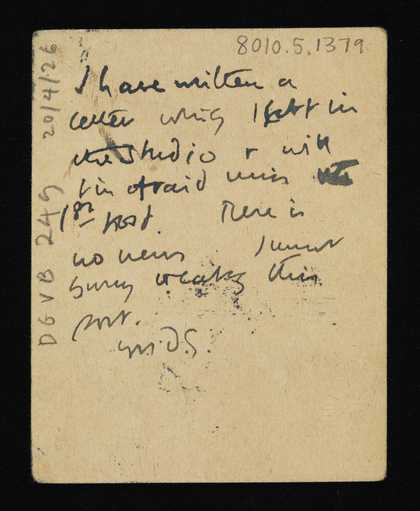 8010.5.1379
DGVB 249 20/4/26
I have written a
letter which I left in
the studio & will
I'm afraid miss
1st post. There is
no news I must
this
post.
yrs D.G.